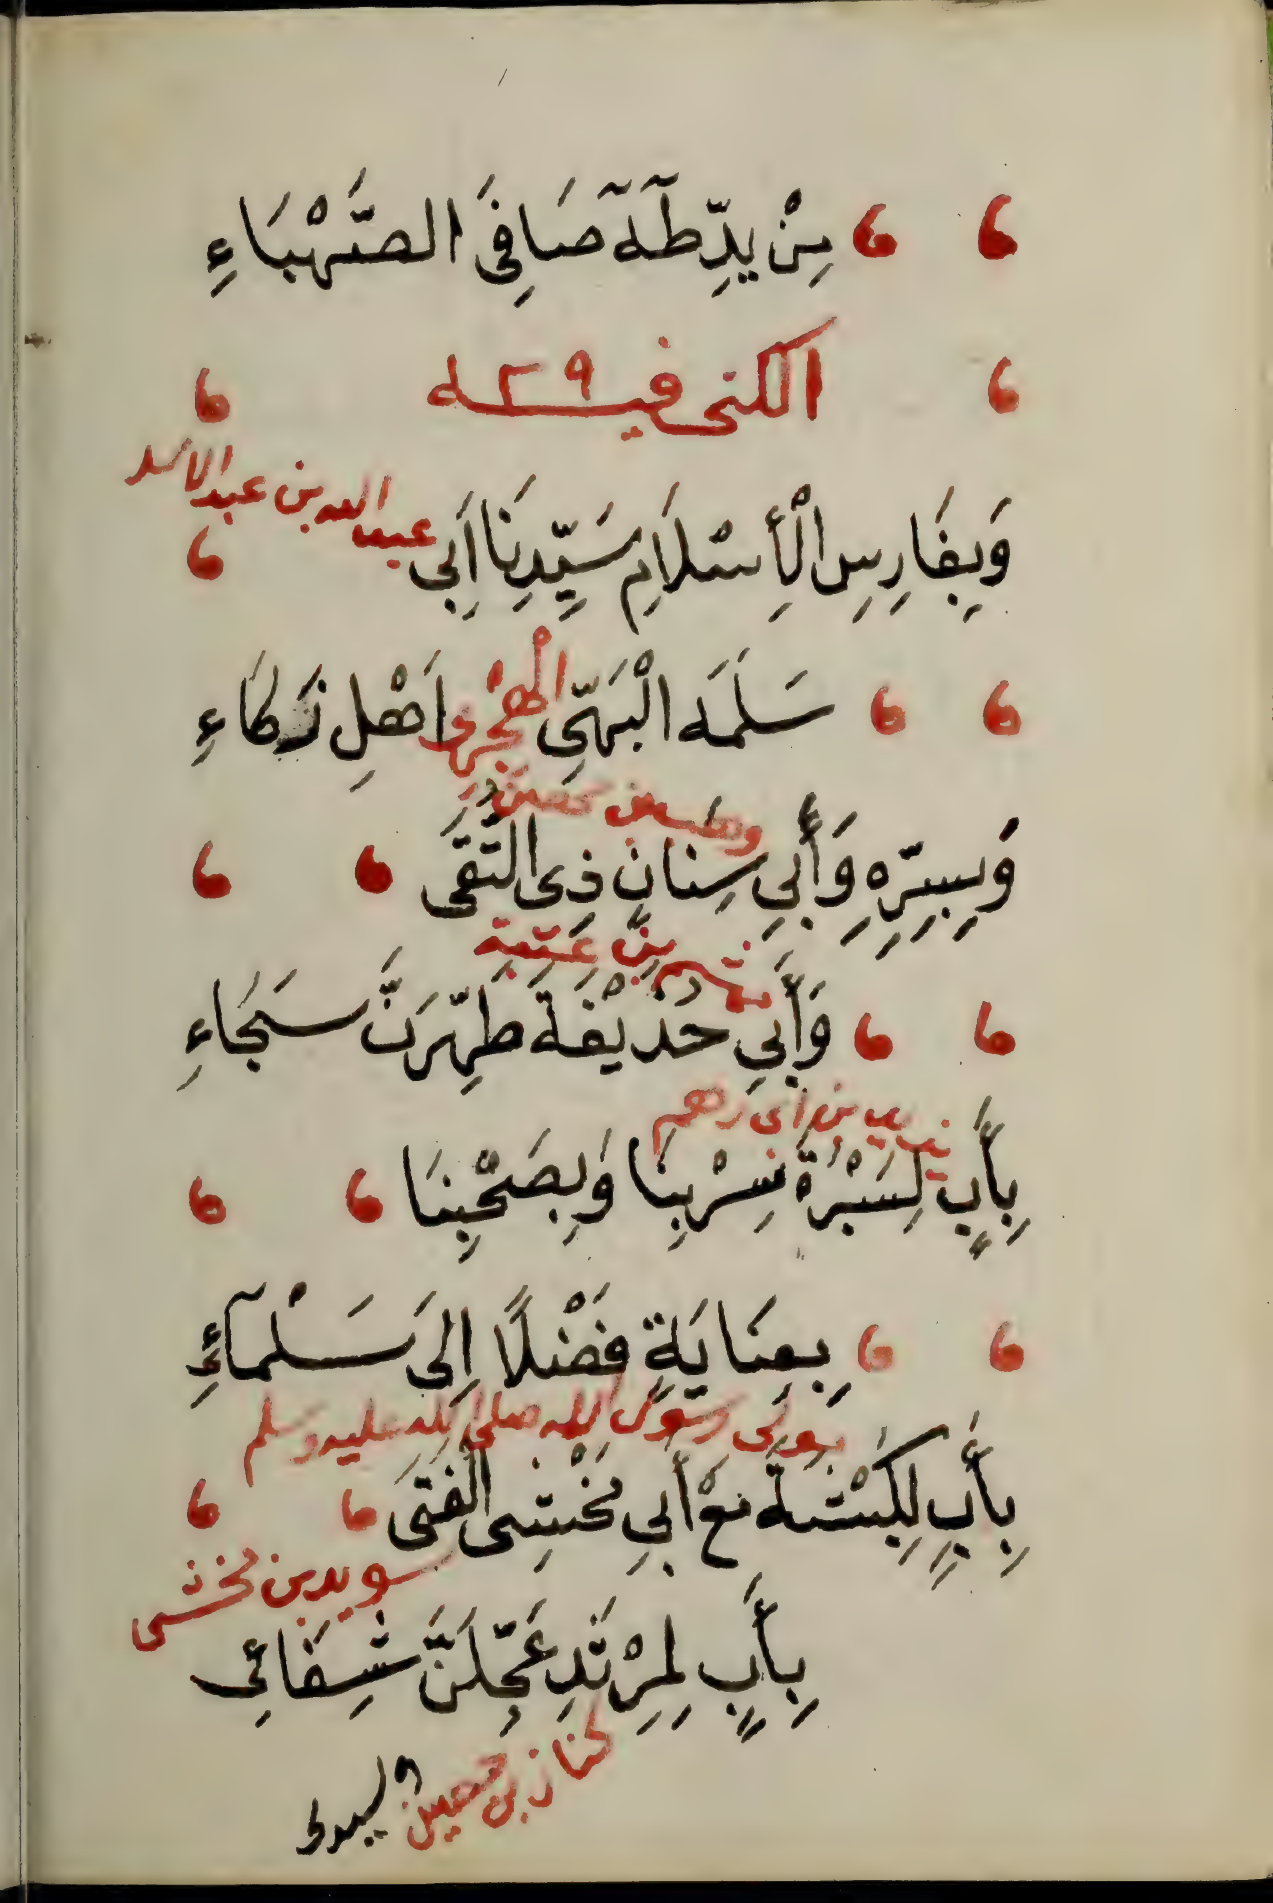 مِنْ يدِّ طَهَ صَافِيَ الصَّهْبَاءِ
الكنى فيه ٢٩
وَبِفَارِسِ الْأِسْلَامِ سَيِّدِنَا اَبِي
عبد الله بن عبد الاسد
سَلَمَه الْبَهِّي الْهَجْرِي اَهْلِ زَكَاءِ
وَبِسِرِّهِ وَأَبِي سِنَانٍ ذِى التُّقَى
وهب بن محصن
وَأَبِي حُذَيْفَةَ طَهِّرَنَّ سَجَاءِ
هشيم بن عتبة
بِأَبٍ لِسَبْرَةَ سِرْبِنَا وَبِصَحْبِنَا
بن أبى رهم
بِعِنَايَةٍ فَضْلًا اِلَى سَلْمَآءٍ
بِأَبٍ لِكَبْشَةَ مَعْ أَبِي مَخْشِى الْفَتَى
مولى رسول الله صلى الله عليه وسلم
سويد بن مخشى
بِأَبٍ لِمِرْثَدِ عَجِّلَنَّ شِفَائِى
كناز بن حصين
وليبدى